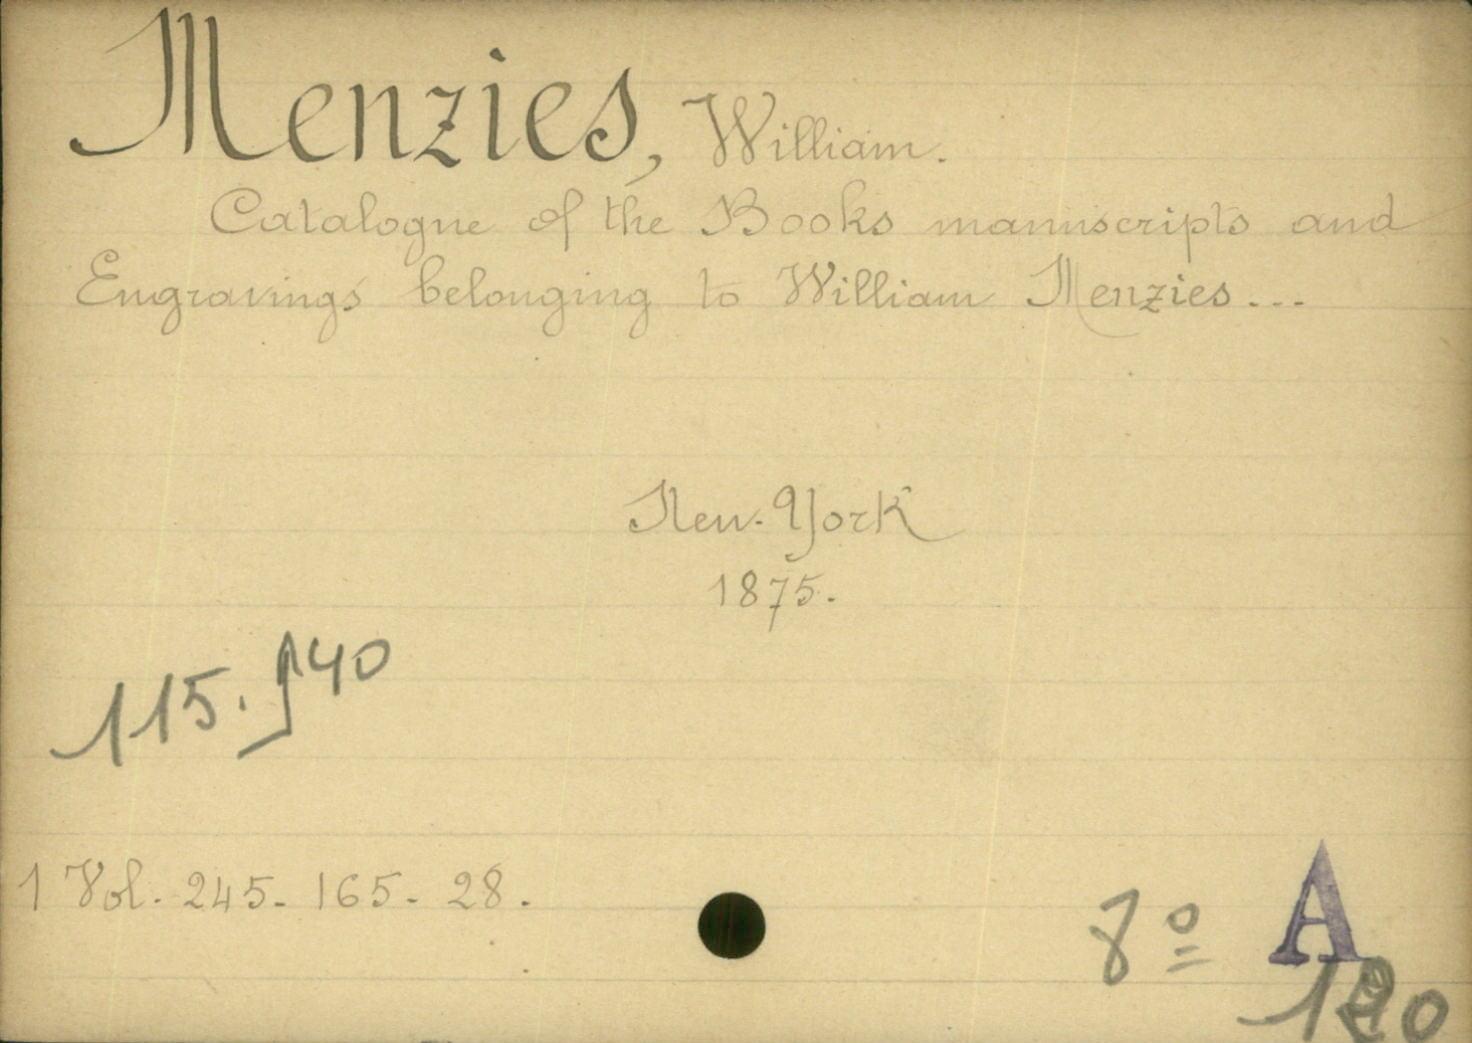 Menzies, William.
Catalogue of the Books manuscripts and
Engravings belonging to William Menzies...
New-York
1875.
1 Vol. 245. 165. 28.
8º A